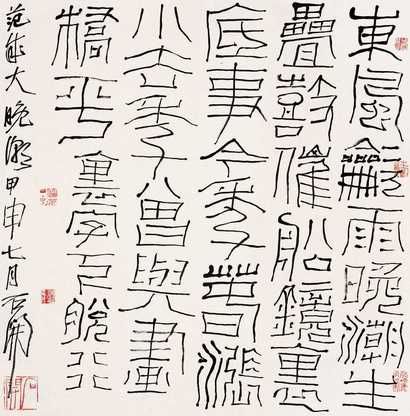 東風龡雨晚潮生
疊鼓催船鏡裏
底事今年春漲
小去年曾與畫
橋平 裏字下脫行
范成大晚潮甲申七月石開